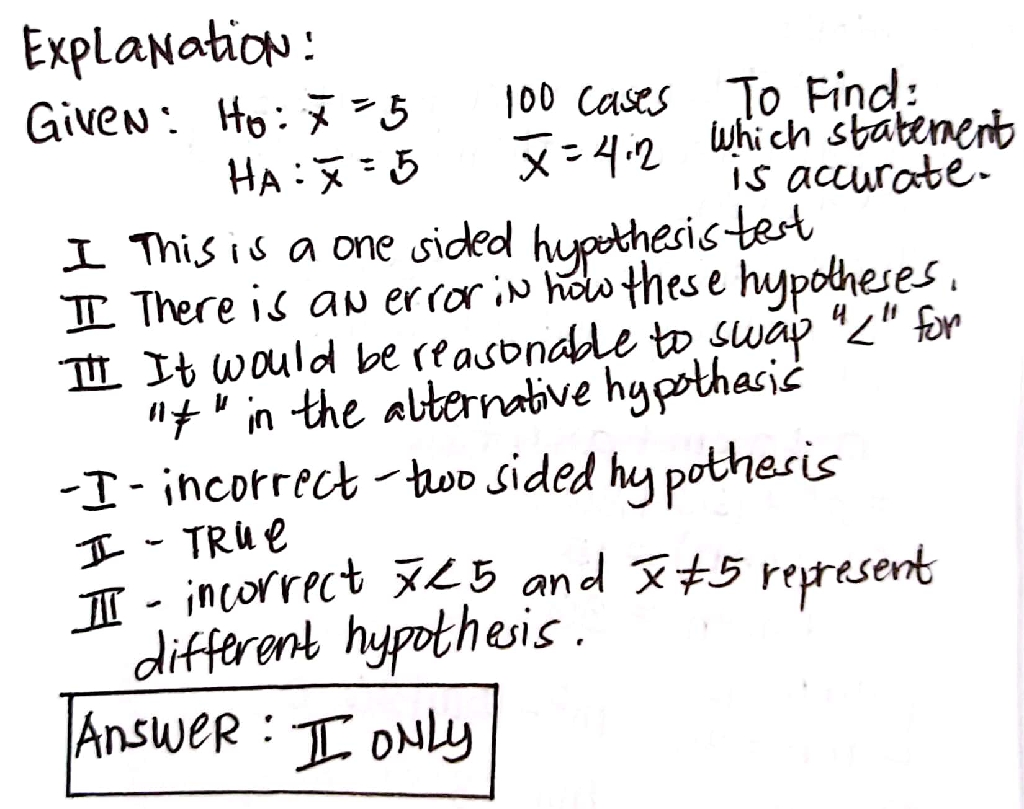 Explanation:
Given: H₀: x̅ = 5 100 cases To Find:
H_A: x̅ = 5 x̅ = 4.2 which statement
is accurate.
I This is a one sided hypothesis test
II There is an error in how these hypotheses.
III It would be reasonable to swap "<" for
"≠" in the alternative hypothesis
- I - incorrect - two sided hypothesis
II - TRUE
III - incorrect x̅ < 5 and x̅ ≠ 5 represent
different hypothesis.
Answer: II ONLY